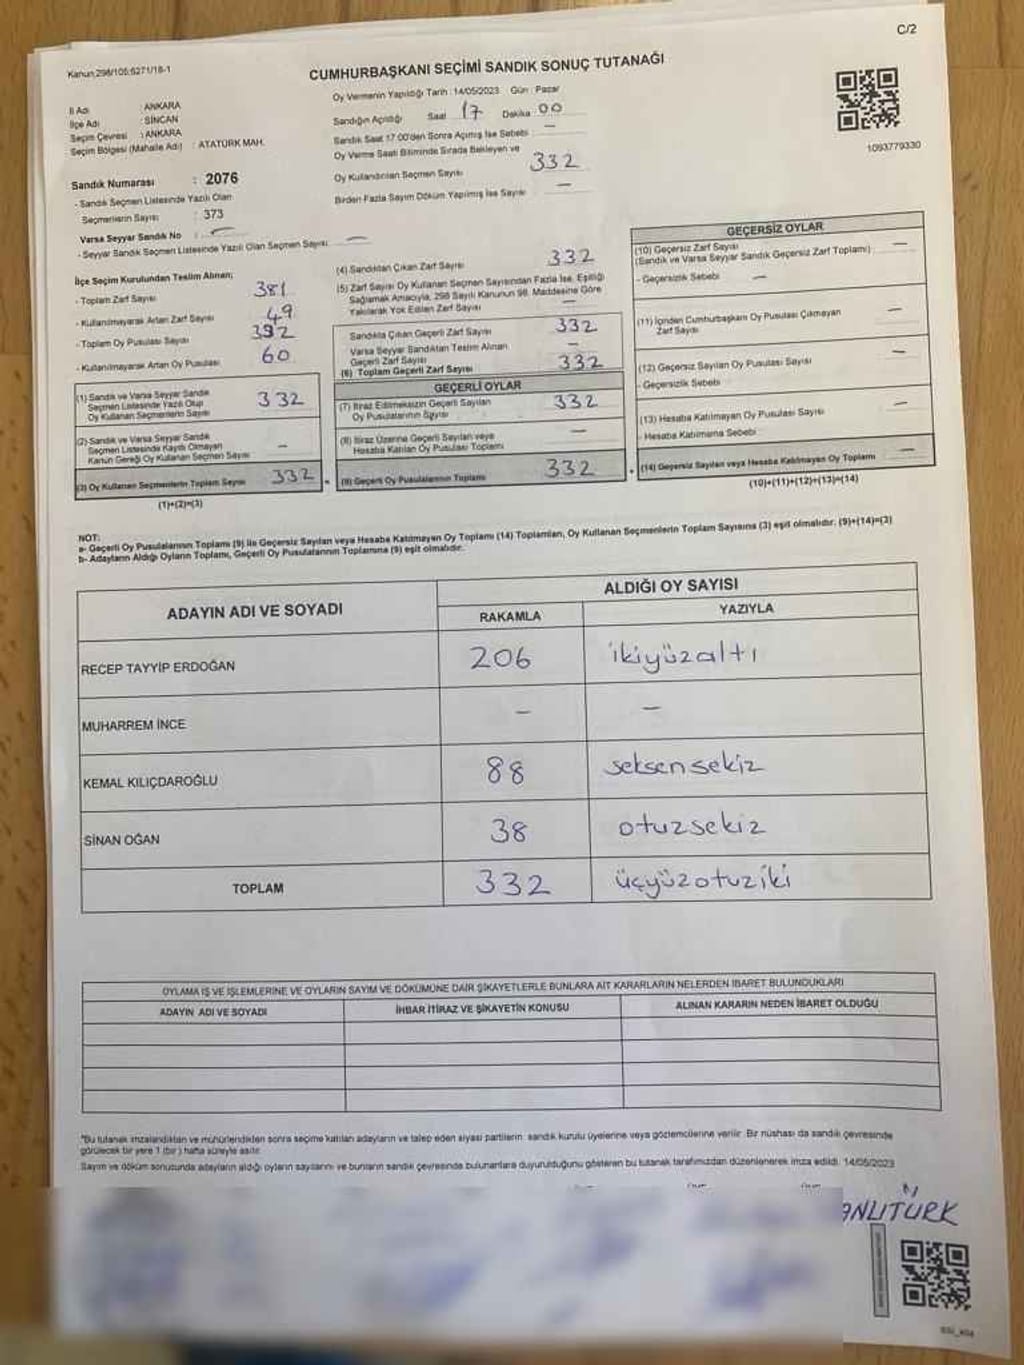 C/2
Kanun:298/105;6271/18-1
CUMHURBAŞKANI SEÇİMİ SANDIK SONUÇ TUTANAĞI
İl Adı : ANKARA
İlçe Adı : SİNCAN
Seçim Çevresi : ANKARA
Seçim Bölgesi (Mahalle Adı) : ATATÜRK MAH.
Oy Vermenin Yapıldığı Tarih : 14/05/2023 Gün : Pazar
Sandığın Açıldığı Saat 17 Dakika 00
Sandık Saat 17:00'den Sonra Açılmış İse Sebebi —
Oy Verme Saati Bitiminde Sırada Bekleyen ve
Oy Kullandırılan Seçmen Sayısı 332
Birden Fazla Sayım Döküm Yapılmış İse Sayısı —
1093779330
Sandık Numarası : 2076
- Sandık Seçmen Listesinde Yazılı Olan
Seçmenlerin Sayısı : 373
Varsa Seyyar Sandık No : —
- Seyyar Sandık Seçmen Listesinde Yazılı Olan Seçmen Sayısı —
İlçe Seçim Kurulundan Teslim Alınan;
- Toplam Zarf Sayısı 381
- Kullanılmayarak Artan Zarf Sayısı 49
- Toplam Oy Pusulası Sayısı 392
- Kullanılmayarak Artan Oy Pusulası 60
(1) Sandık ve Varsa Seyyar Sandık
Seçmen Listesinde Yazılı Olup
Oy Kullanan Seçmenlerin Sayısı 332
(2) Sandık ve Varsa Seyyar Sandık
Seçmen Listesinde Kayıtlı Olmayan
Kanun Gereği Oy Kullanan Seçmen Sayısı —
(3) Oy Kullanan Seçmenlerin Toplam Sayısı 332
(1)+(2)=(3)
(4) Sandıktan Çıkan Zarf Sayısı 332
(5) Zarf Sayısı Oy Kullanan Seçmen Sayısından Fazla İse, Eşitliği
Sağlamak Amacıyla, 298 Sayılı Kanunun 98. Maddesine Göre
Yakılarak Yok Edilen Zarf Sayısı —
Sandıkta Çıkan Geçerli Zarf Sayısı 332
Varsa Seyyar Sandıktan Teslim Alınan
Geçerli Zarf Sayısı —
(6) Toplam Geçerli Zarf Sayısı 332
GEÇERLİ OYLAR
(7) İtiraz Edilmeksizin Geçerli Sayılan
Oy Pusulalarının Sayısı 332
(8) İtiraz Üzerine Geçerli Sayılan veya
Hesaba Katılan Oy Pusulası Toplamı —
(9) Geçerli Oy Pusulalarının Toplamı 332
GEÇERSİZ OYLAR
(10) Geçersiz Zarf Sayısı
(Sandık ve Varsa Seyyar Sandık Geçersiz Zarf Toplamı) —
- Geçersizlik Sebebi —
(11) İçinden Cumhurbaşkanı Oy Pusulası Çıkmayan
Zarf Sayısı —
(12) Geçersiz Sayılan Oy Pusulası Sayısı —
- Geçersizlik Sebebi
(13) Hesaba Katılmayan Oy Pusulası Sayısı —
- Hesaba Katılmama Sebebi
(14) Geçersiz Sayılan veya Hesaba Katılmayan Oy Toplamı —
(10)+(11)+(12)+(13)=(14)
NOT:
a- Geçerli Oy Pusulalarının Toplamı (9) ile Geçersiz Sayılan veya Hesaba Katılmayan Oy Toplamı (14) Toplamları, Oy Kullanan Seçmenlerin Toplam Sayısına (3) eşit olmalıdır. (9)+(14)=(3)
b- Adayların Aldığı Oyların Toplamı, Geçerli Oy Pusulalarının Toplamına (9) eşit olmalıdır.
ADAYIN ADI VE SOYADI
ALDIĞI OY SAYISI
RAKAMLA YAZIYLA
RECEP TAYYİP ERDOĞAN 206 ikiyüzaltı
MUHARREM İNCE — —
KEMAL KILIÇDAROĞLU 88 seksensekiz
SİNAN OĞAN 38 otuzsekiz
TOPLAM 332 üçyüzotuziki
OYLAMA İŞ VE İŞLEMLERİNE VE OYLARIN SAYIM VE DÖKÜMÜNE DAİR ŞİKAYETLERLE BUNLARA AİT KARARLARIN NELERDEN İBARET BULUNDUKLARI
ADAYIN ADI VE SOYADI İHBAR İTİRAZ VE ŞİKAYETİN KONUSU ALINAN KARARIN NEDEN İBARET OLDUĞU
*Bu tutanak imzalandıktan ve mühürlendikten sonra seçime katılan adayların ve talep eden siyasi partilerin sandık kurulu üyelerine veya gözlemcilerine verilir. Bir nüshası da sandık çevresinde
görülecek bir yere 1 (bir) hafta süreyle asılır.
Sayım ve döküm sonucunda adayların aldığı oyların sayılarını ve bunların sandık çevresinde bulunanlara duyurulduğunu gösteren bu tutanak tarafımızdan düzenlenerek imza edildi. 14/05/2023
ANLITÜRK